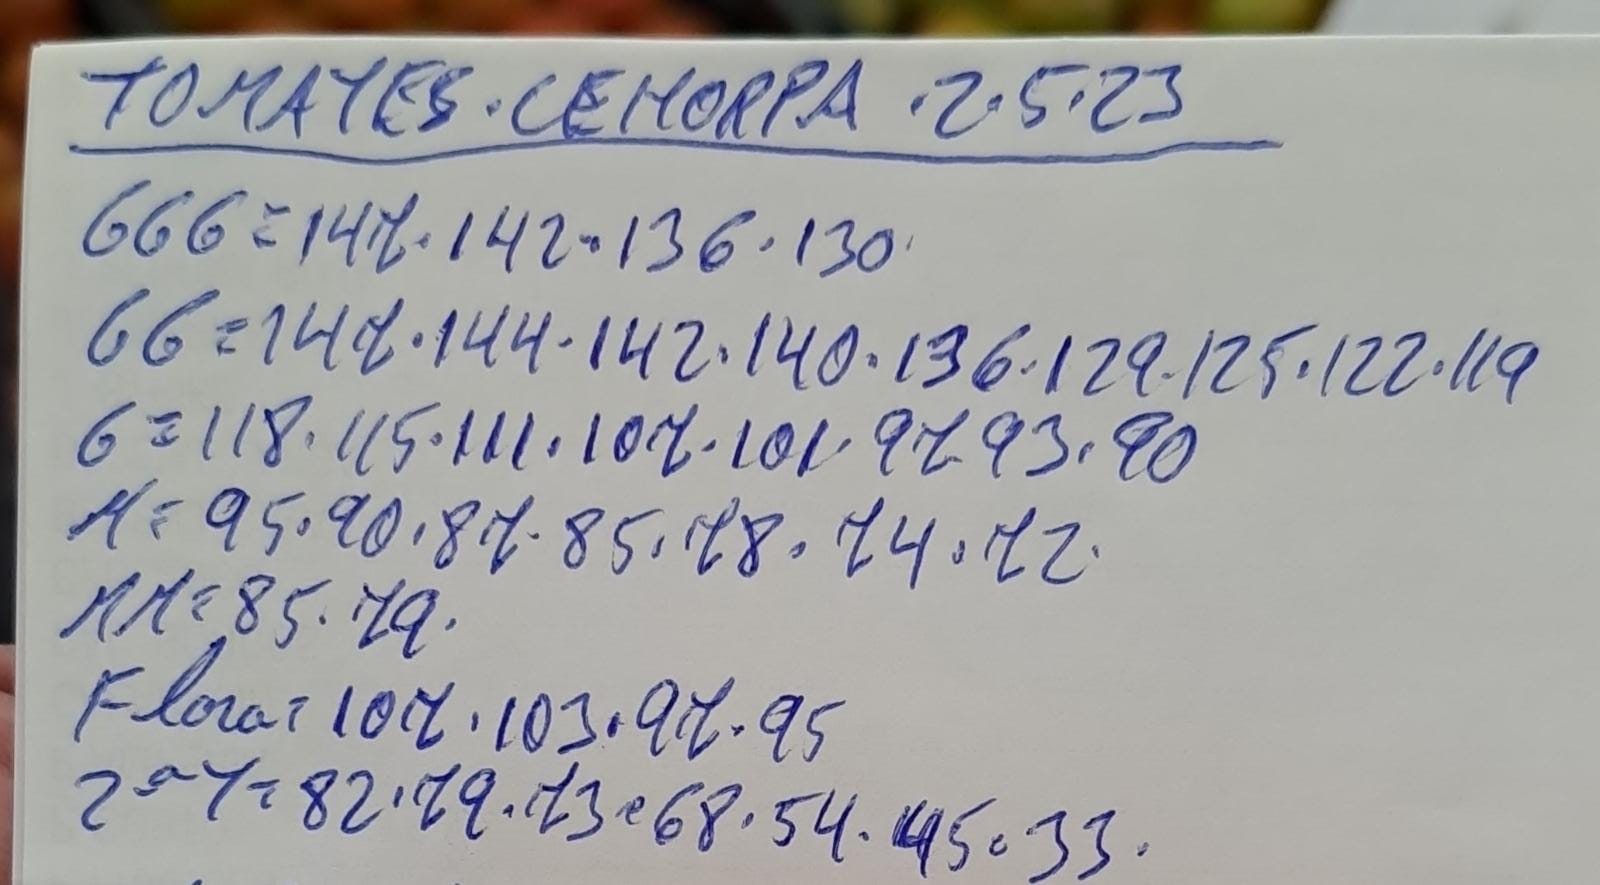 TOMATES.CEHORPA.2.5.23
GGG=147.142.136.130
GG=147.144.142.140.136.129.125.122.119
G=118.115.111.107.101.97.93.90
M=95.90.87.85.78.74.72.
MM=85.79.
Flora=107.103.97.95
2ªT=82.79.73.68.54.45.33.